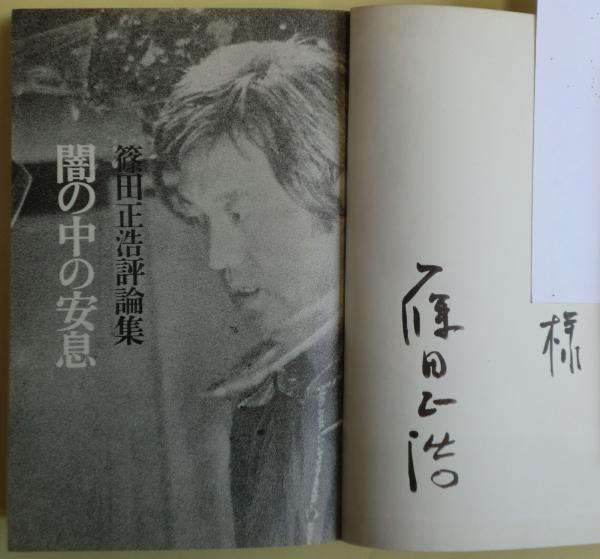 篠田正浩評論集
闇の中の安息
様
篠田正浩